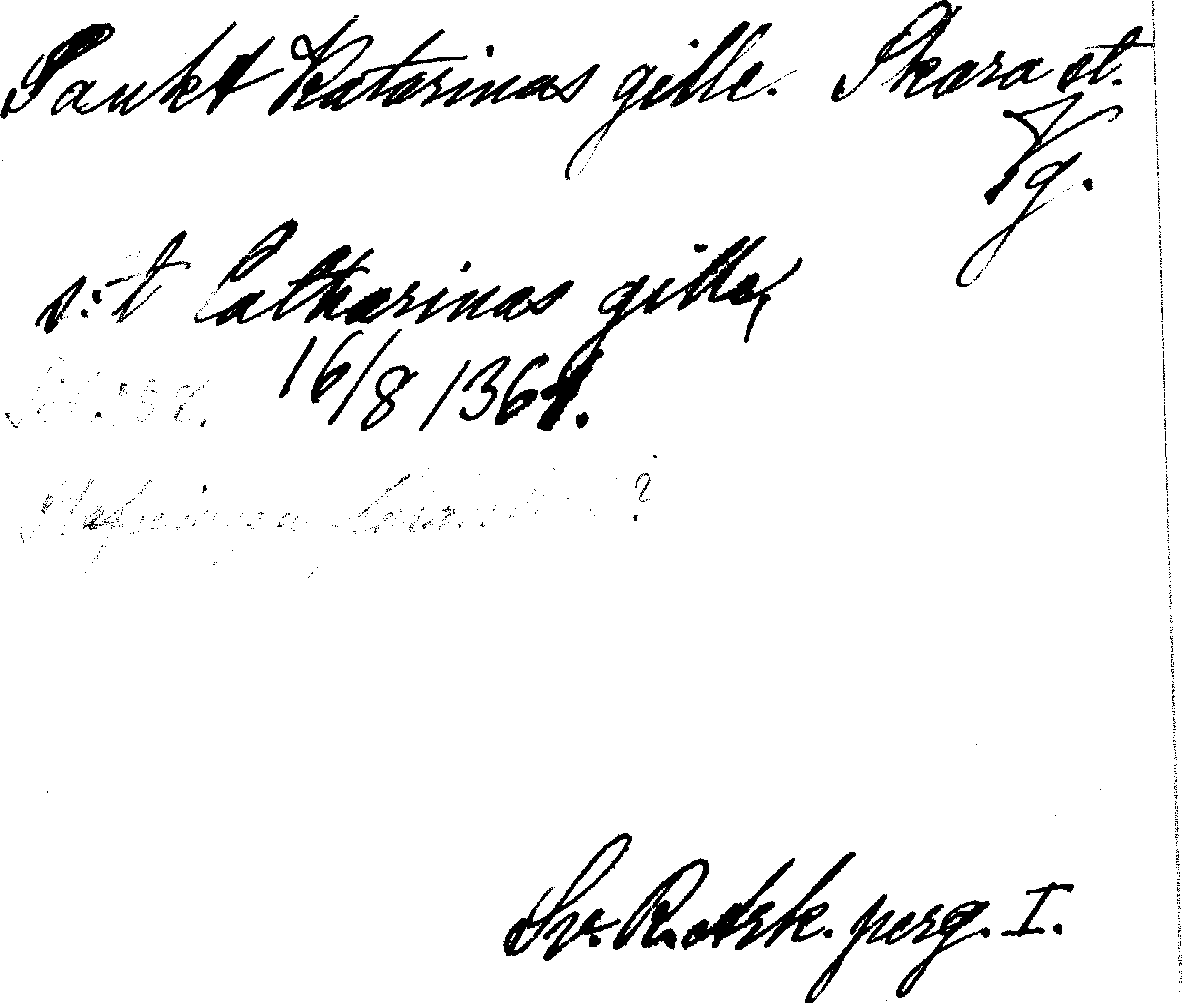 Sankt Katarinas gille. Skara st.
Vg.
s:t Catharinas gille,
16/8 1361.
?
Sv. R. ark. perg. I.